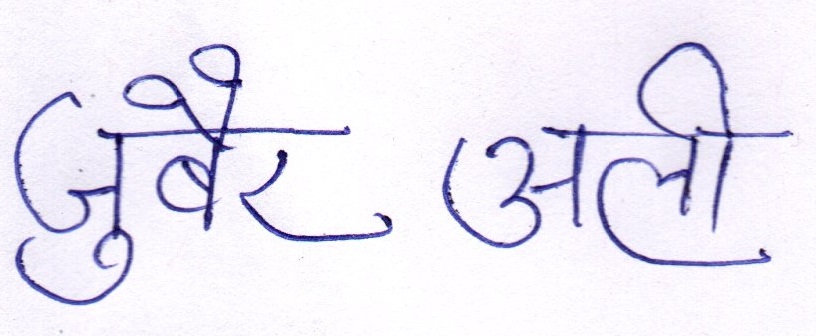 जुबैर अली